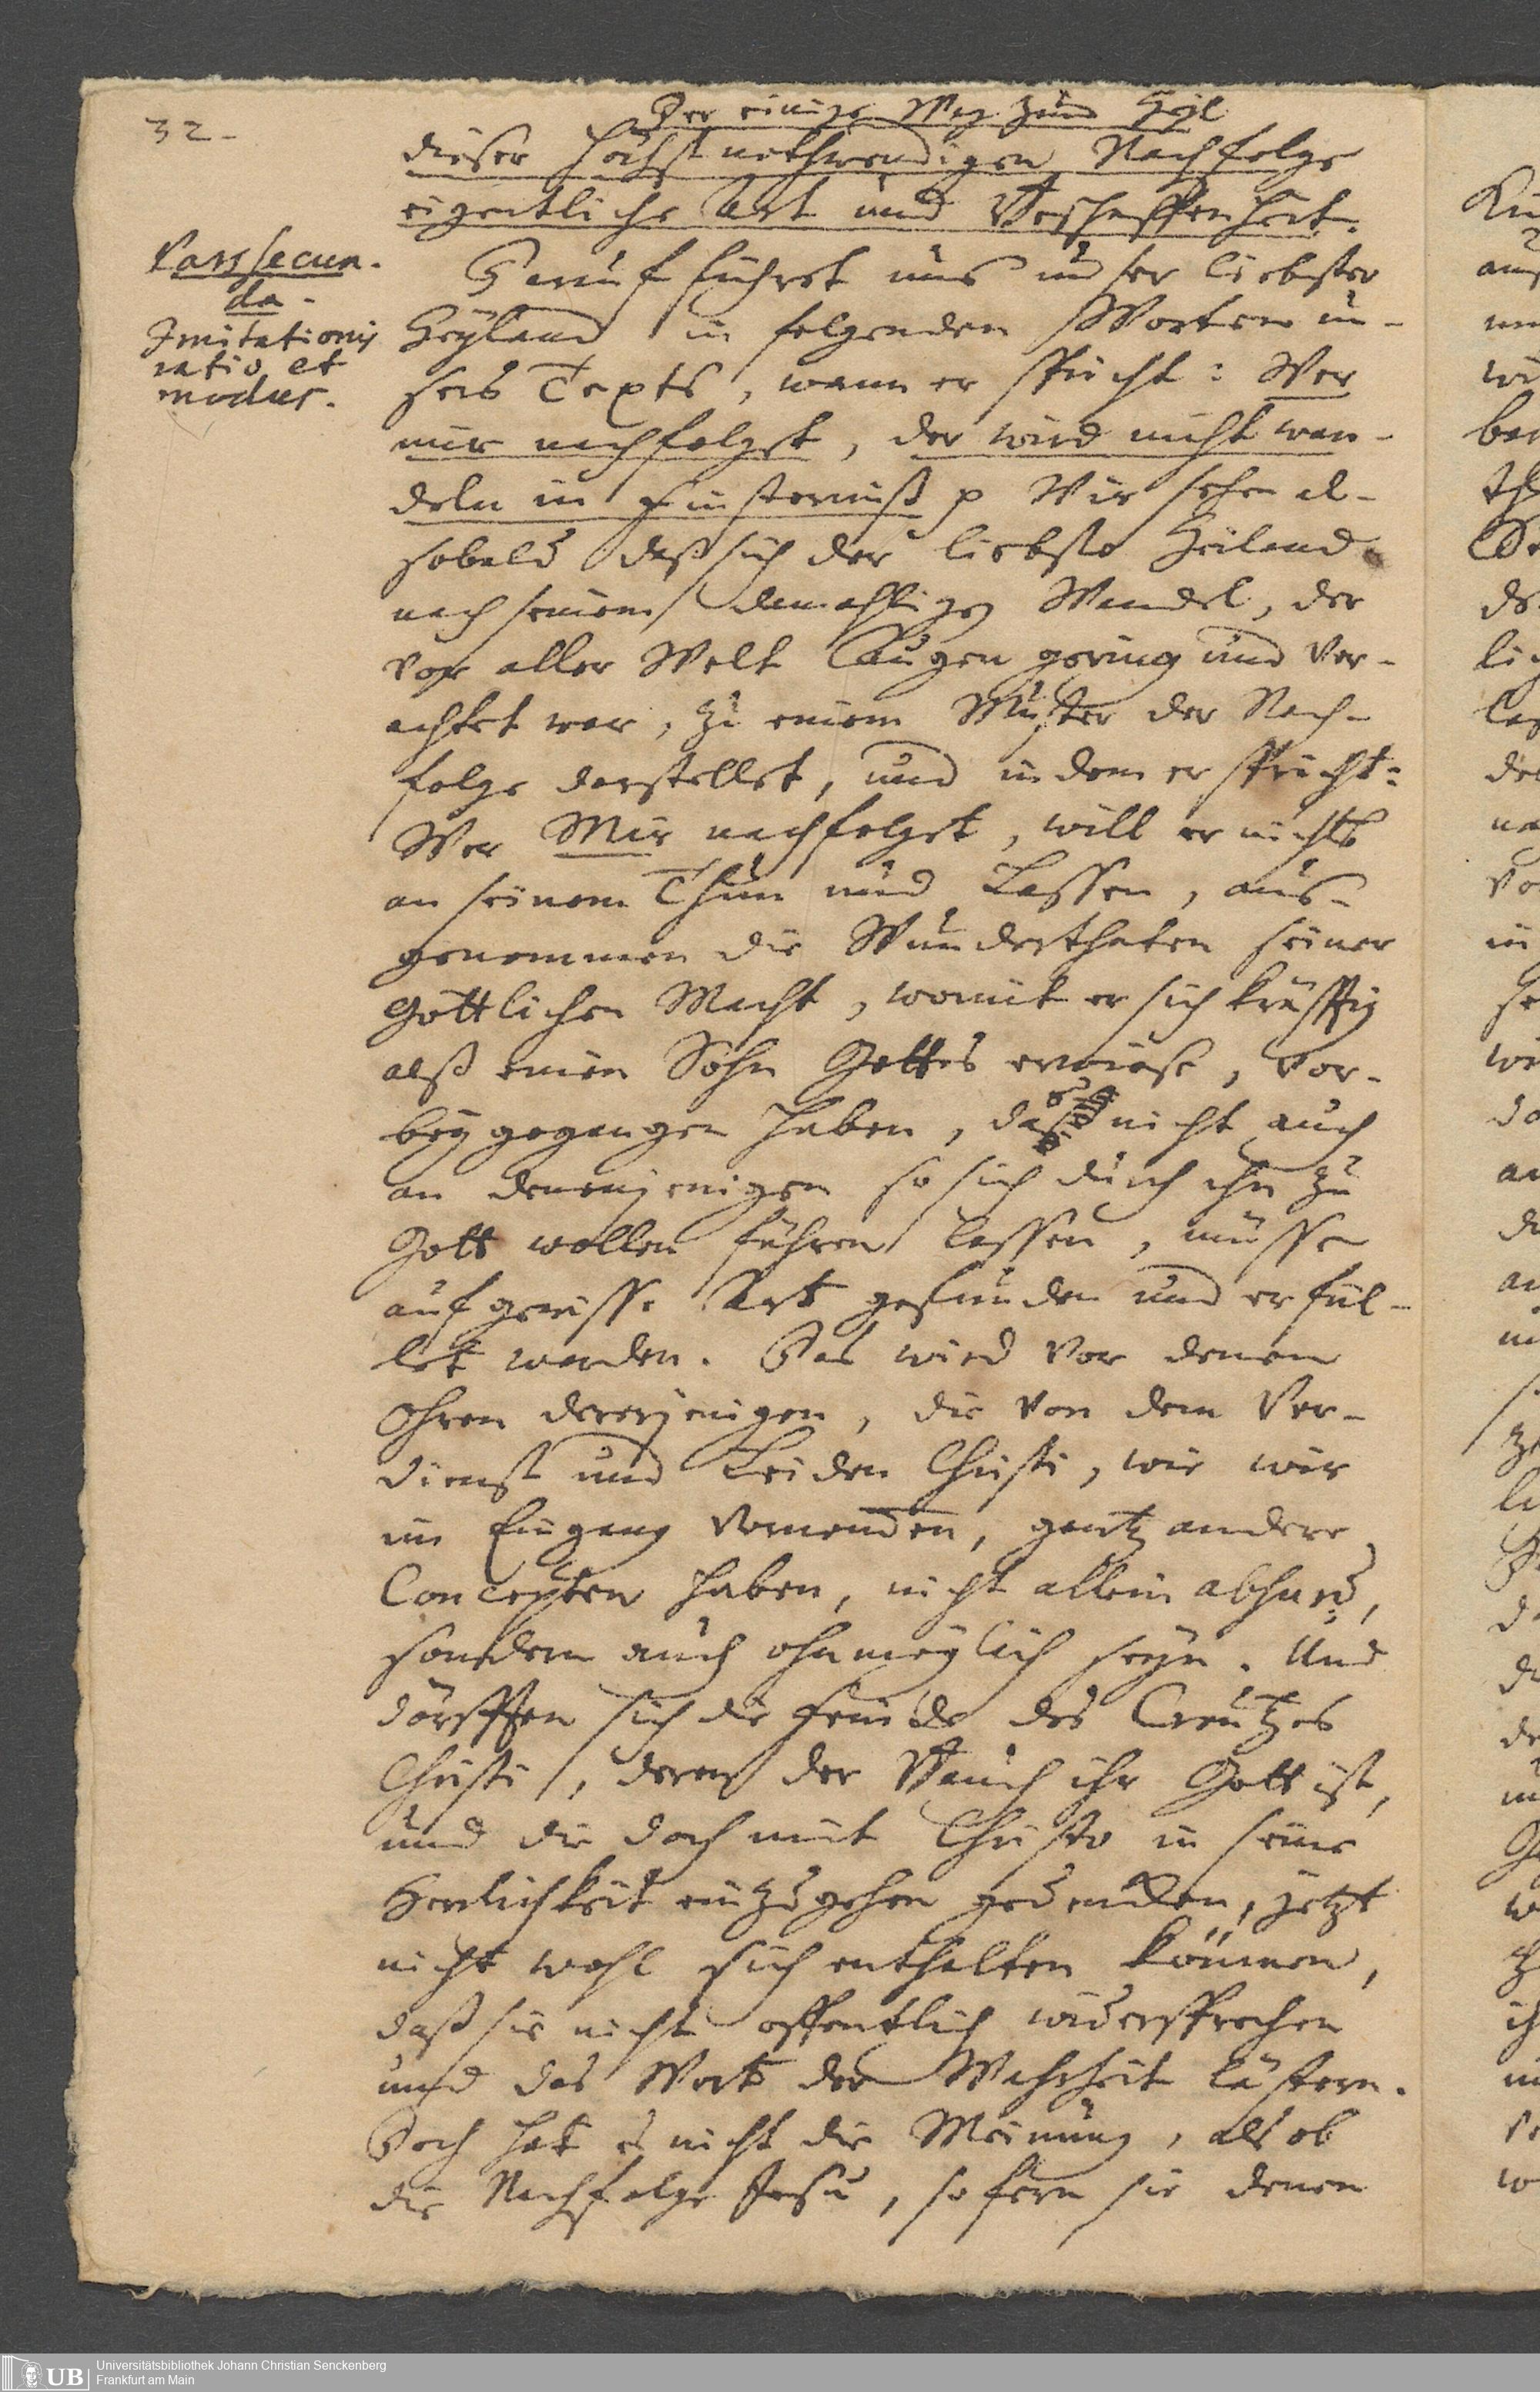 32.
Der einige Weg zum Heyl
dieser höchst nothwendigen Nachfolge
eigentliche Art und Beschaffenheit.
Pars secun-
da.
Imitationis
ratio et
modus.
Hierauf führet uns unser liebster
Heyland in folgenden Worten un-
sers Texts, wann er spricht: Wer
mir nachfolget, der wird nicht wan-
deln in Finsternuß p Wir sehen al-
sobald daß sich der liebste Heiland
nach seinem damahligen Wandel, der
vor aller Welt Augen gering und ver-
achtet war, zu einem Muster der Nach-
folge darstellet, und indem er spricht:
Wer Mir nachfolget, will er nichts
an seinem Thun und Lassen, aus-
genommen die Wunderthaten seiner
Göttlichen Macht, womit er sich kräfftig
alß einen Sohn Gottes erwiese, vor-
bey gegangen haben, das nicht auch
an denenjenigen so sich durch ihn zu
Gott wollen führen lassen, müsse
auf gewisse Art gefunden und erfül-
let werden. Das wird vor denen
Ohren dererjenigen, die von dem Ver-
dienst und Leiden Christi, wie wir
im Eingang vernomen, gantz andere
Concepten haben, nicht allein absurd,
sondern auch ohnmöglich seyn. Und
dörfften sich die Feinde des Creutzes
Christi, deren der Bauch ihr Gott ist,
und die doch mit Christo in seine
Herrlichkeit einzugehen gedencken, jetzt
nicht wohl sich enthalten können,
daß sie nicht offentlich widersprechen
und das Wort der Wahrheit lästern.
Doch hat es nicht die Meinung, als ob
die Nachfolge Jesu, so fern sie denen
UB
Universitätsbibliothek Johann Christian Senckenberg
Frankfurt am Main